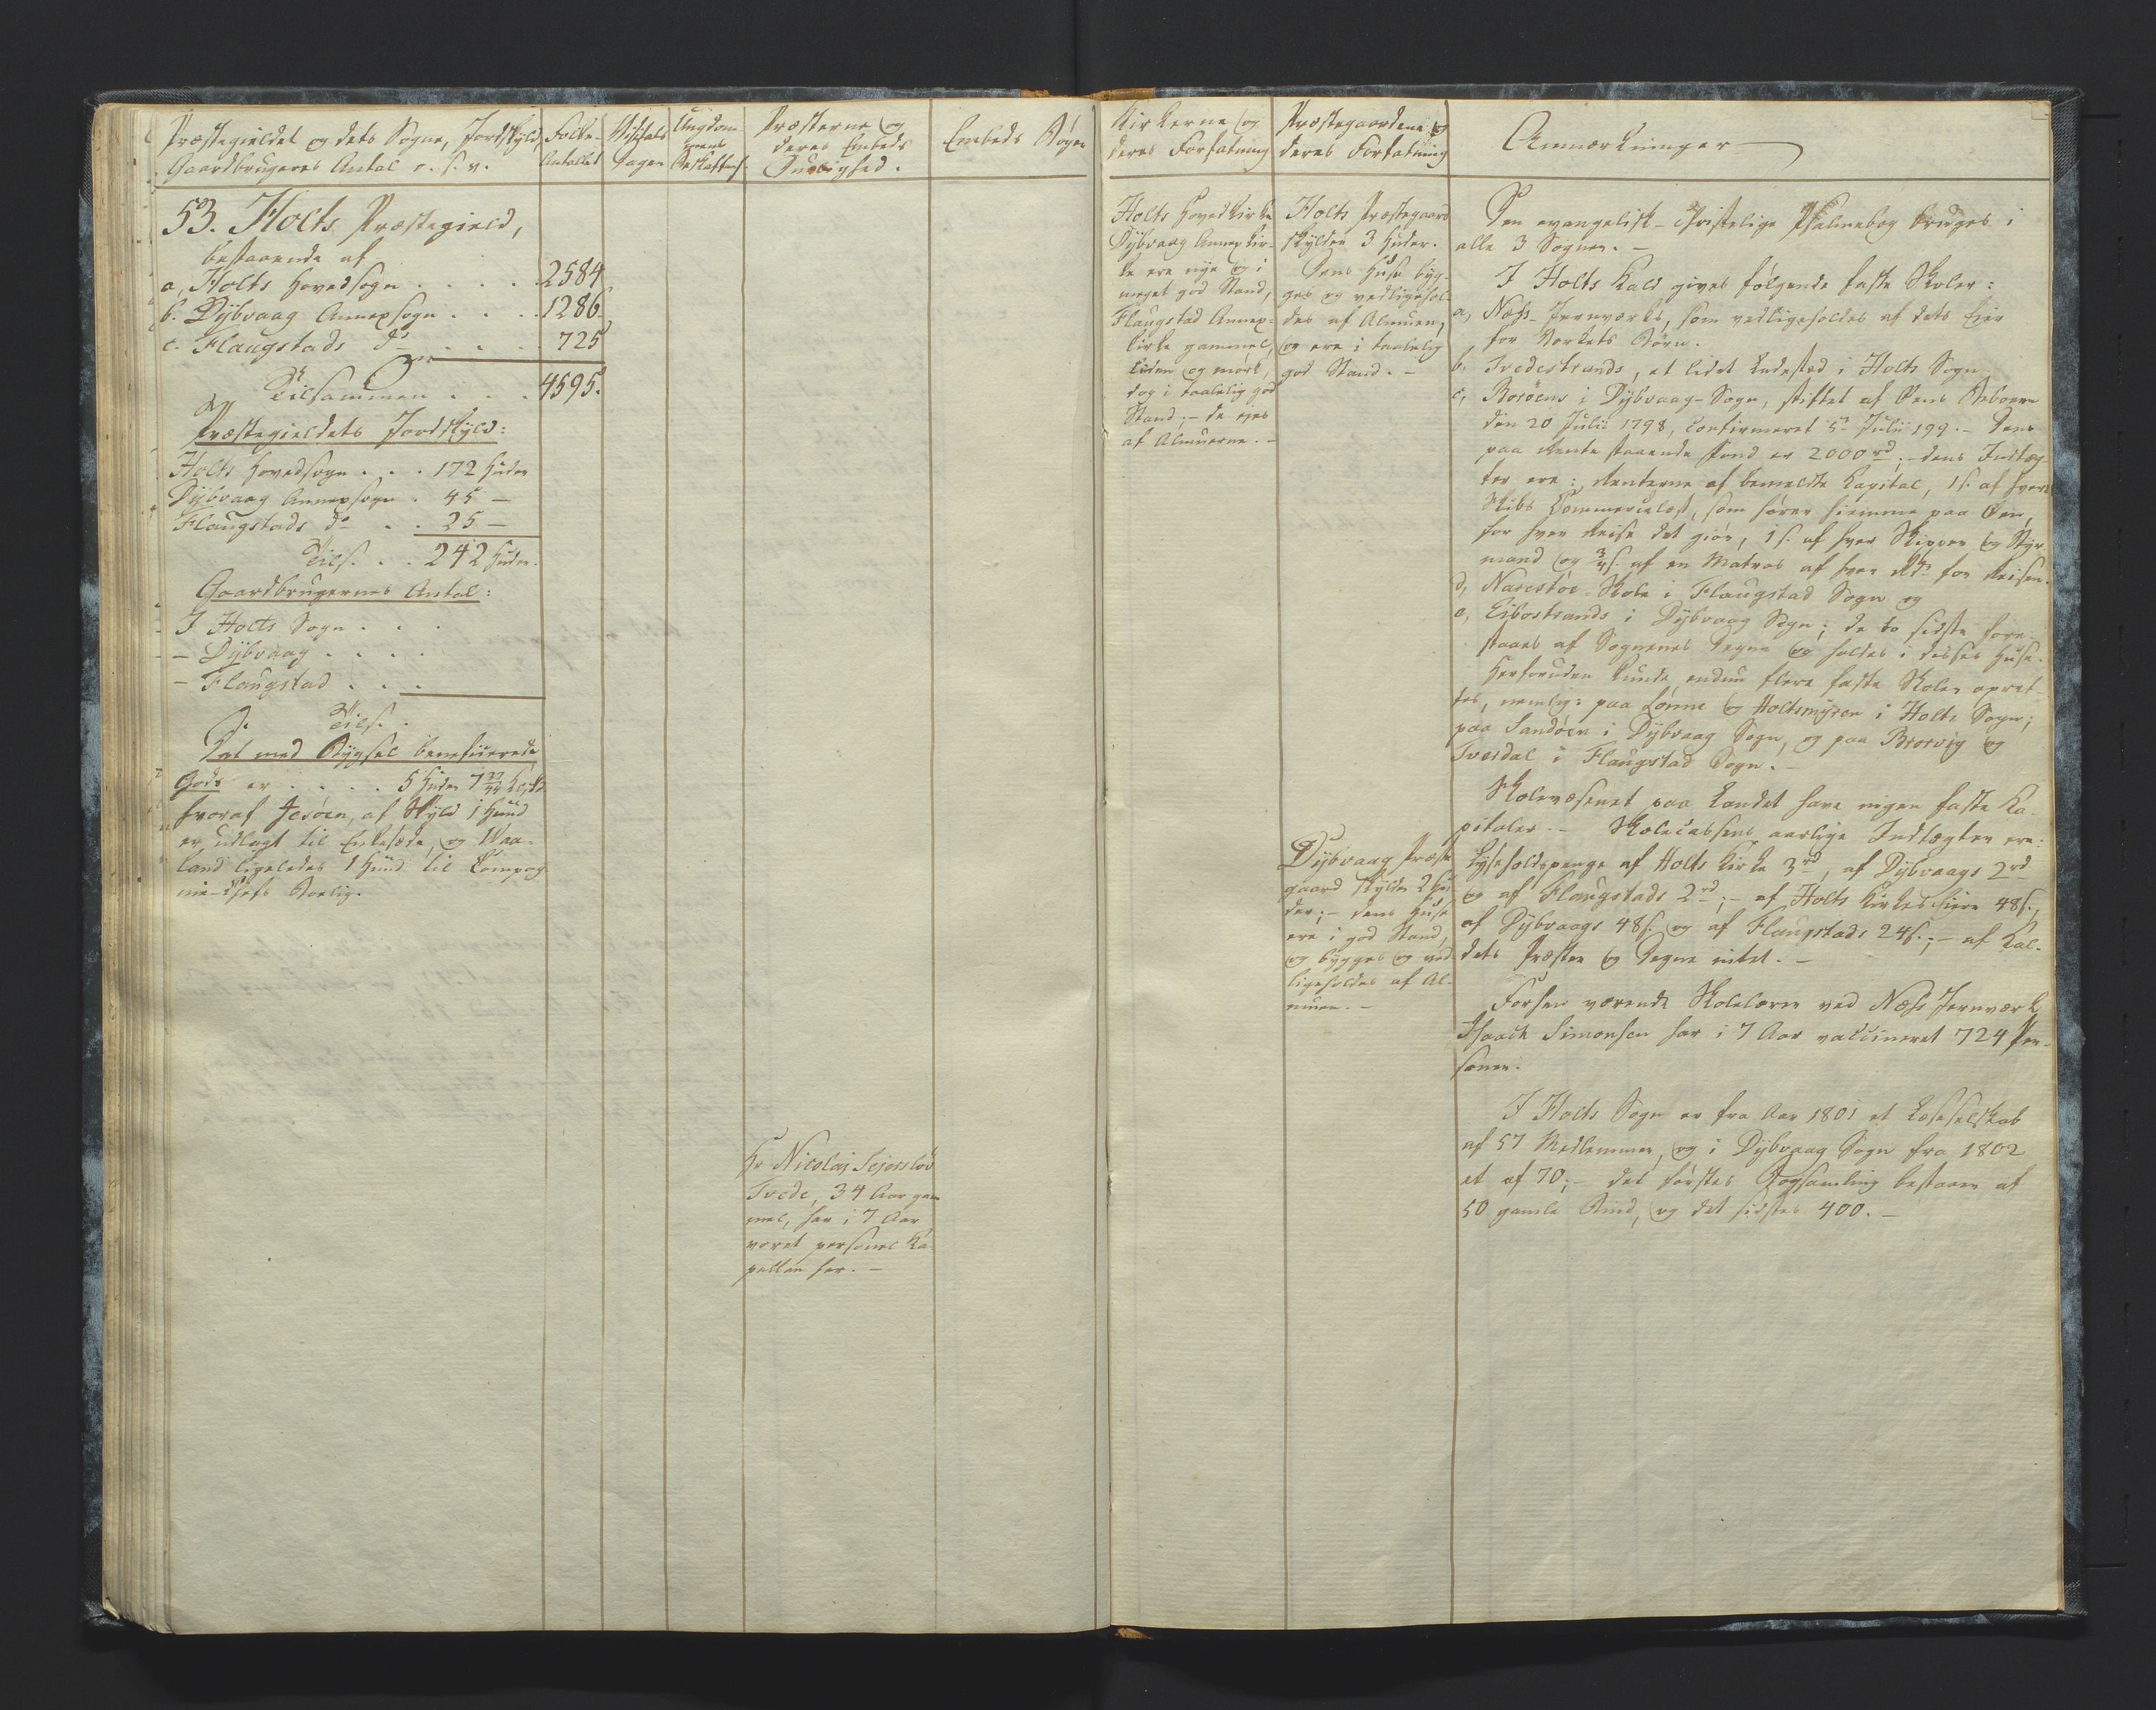 Præstegieldet og dets Sogne, Jordskyld,
Gaardbrugeres Antal o. s. v.
Folke-
Antallet
Visitats
Dagen
Ungdom-
mens
Beskaffenh.
Præsterne og
deres Embeds
Duelighed.
Embeds Bøger
53. Holts Præstegield,
bestaaende af
a, Holts Hovedsogn . . . . . 2584
b. Dÿbvaag Annexsogn . . . . 1286
c. Flaugstads do . . . . 725
Tilsammen . . . 4595.
Præstegieldets Jordskyld:
Holts Hovedsogn . . . 172 Huder
Dÿbvaag Annexsogn . 45 —
Flaugstads do . . 25 —
Tils. . . 242 Huder.
Gaardbrugernes Antal:
I Holts Sogn . . .
— Dÿbvaag . . . .
— Flaugstad . . .
Tils. .
Det med Bÿgsel beneficerede
Gods er . . . . . 5 Huder 7
hvoraf Jesøen, af Skyld 1 Huud
er udlagt til Enkesæde, og Vaa-
land ligeledes 1 Huud til Compag
nie-Chefs Boelig.
Hr Nicolaj Sejersløv
Tvede, 34 Aar gam
mel, har i 7 Aar
været personel Ka
pellan her. —
Kirkerne og
deres Forfatning
Præstegaardene og
deres Forfatning
Anmærkninger
Holts Hovedkirke
Dÿbvaag Annexkir-
ke ere nÿe og i
meget god Stand,
Flaugstad Annex-
kirke gammel,
liden og mørk,
dog i taalelig god
Stand; — de ejes
af Almuerne. —
Holts Præstegaard
skylder 3 Huder.
Dens Huse byg-
ges og vedligehol-
des af Almuen,
og ere i taalelig
god Stand. —
Dÿbvaag Præste
gaard skylder 2 Hu
der; — dens Huse
ere i god Stand,
og bygges og ved-
ligeholdes af Al-
muen. —
Den evangelisk-christelige Psalmebog bruges i
alle 3 Sogne. —
I Holts Kald gives følgende faste Skoler:
a, Næss-Jernværks, som vedligeholdes af dets Eier
for Verkets Børn.
b, Tvedestrands, et lidet Ladested i Holts Sogn.
c, Borøens i Dÿbvaag-Sogn, stiftet af Øens Beboere
den 20 Julii 1798, confirmeret 5te Julii 199. — Dens
paa Rente staaende Fond er 2000 rd; — dens Indtæg-
ter ere: Renterne af bemeldte Kapital, 1 s. af hver
Skibs Commercelæst, som hører hiemme paa Øen,
for hver Reise det giør, 1 s. af hver Skipper og Styr-
mand og 3/4 s. af en Matros af hver Rdr for Reisen.
d, Narestøe-Skole i Flaugstad Sogn og
e, Eibostrands i Dÿbvaag Sogn; de to sidste fore-
staaes af Sognenes Degne og holdes i disses Huse.
Herforuden kunde endnu flere faste Skoler opret-
tes, nemlig: paa Lønne og Holtsmÿren i Holts Sogn;
paa Sandøen i Dÿbvaag Sogn, og paa Brorvig og
Tverdal i Flaugstad Sogn. —
Skolevæsenet paa Landet have ingen faste Ka-
pitaler. — Skolecassens aarlige Indtægter ere:
Lyseholdspenge af Holts Kirke 3 rd, af Dÿbvaags 2 rd
og af Flaugstads 2 rd; — af Holts Kirkes Eiere 48 s.,
af Dÿbvaags 48 s. og af Flaugstads 24 s.; — af Kal-
dets Præster og Degne intet. —
Forhen værende Skolelærer ved Næss Jernværk
Isaach Simonsen har i 7 Aar vaccineret 724 Per-
soner.
I Holts Sogn er fra Aar 1801 et Læseselskab
af 57 Medlemmer, og i Dÿbvaag Sogn fra 1802
et af 70; — det førstes Bogsamling bestaaer af
50 gamle Bind, og det sidstes 400. —